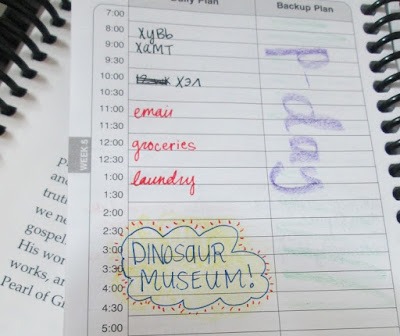 Daily Plan
Backup Plan
7:00
8:00 Хувь
9:00 Хамт
9:30
10:00 хэл
10:30
11:00 email
11:30
12:00 groceries
12:30
1:00 laundry
1:30
2:00
2:30
3:00 DINOSAUR
3:30 MUSEUM!
4:00
4:30
5:00
P-day
WEEK 5
and
truth
we ne
gospel
His wor
works, an
Pearl of G